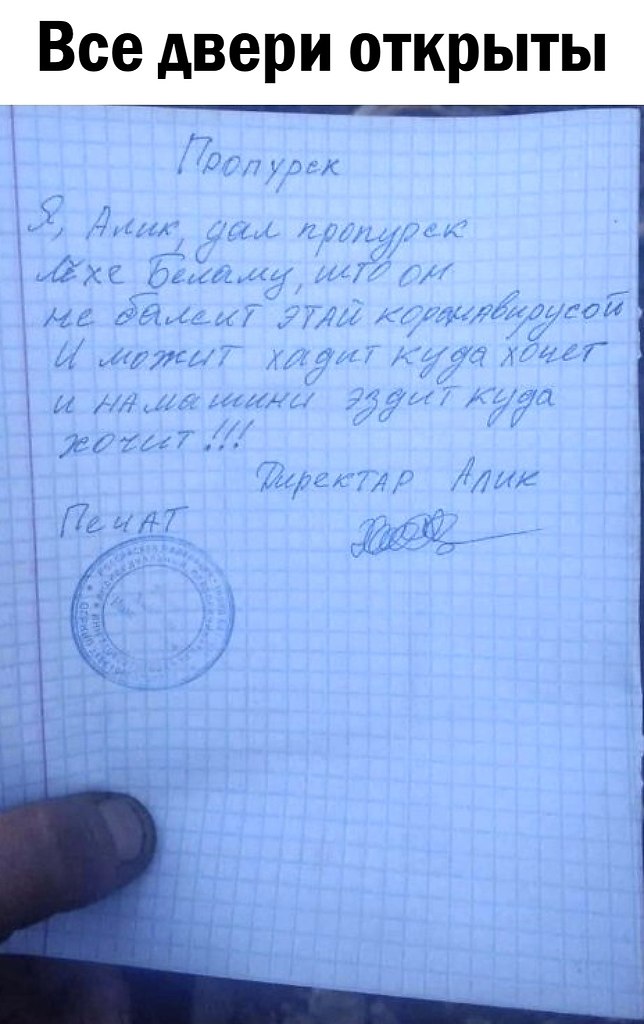 Все двери открыты
Пропурск
Я, Алик, дал пропурск
Лёхе Беламу, што он
не балеит этай коронавирусой
Иможит хадит куда хочет
и на машини эздит куда
хочит!!!
Директар Алик
Печат